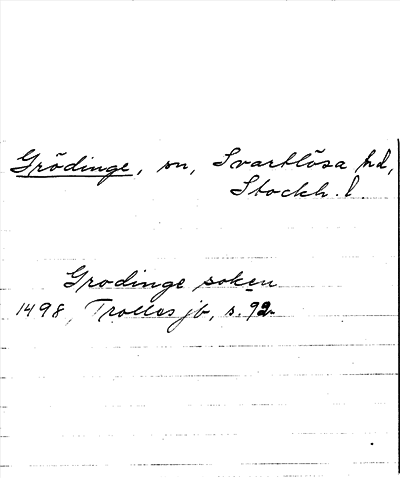 Grödinge, sn, Svartlösa hd,
Stockh. l.
Grodinge soken
1498, Trolles jb, s. 92